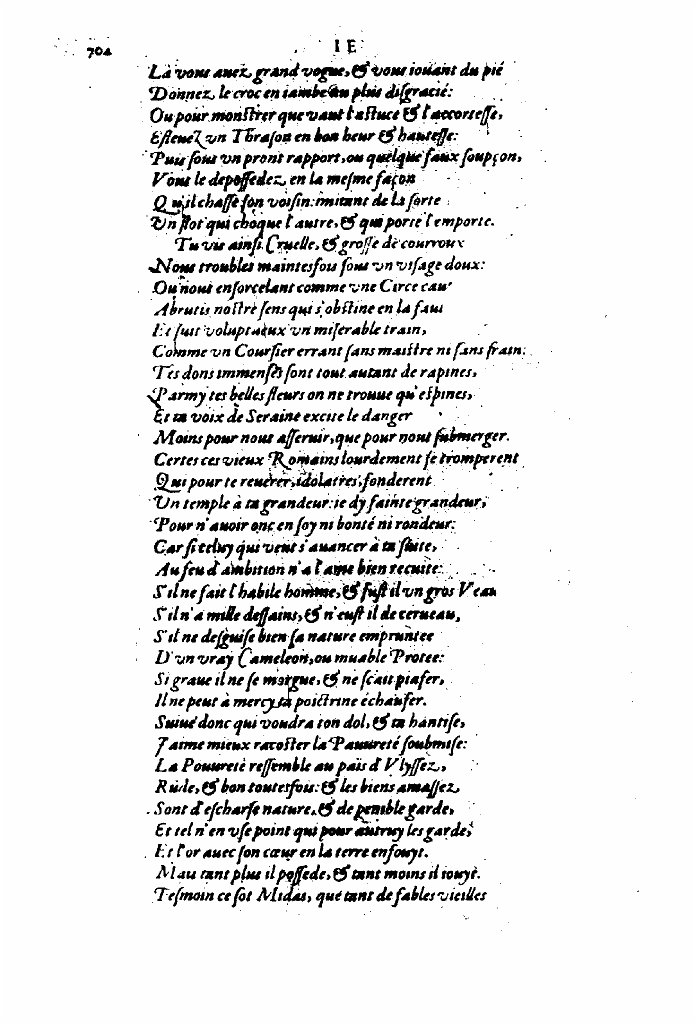 704 IE
Là vous auez grand vogue, & vous iouant du pié
Donnez le croc en iambe au plus disgracié:
Ou pour monstrer que vaut l'astuce & l'accortesse,
Esleuez vn Thrason en bon heur & hautesse:
Puis sous vn pront rapport, ou quelque faux soupçon,
Vous le depossedez en la mesme façon
Qu'il chasse son voisin: imitant de la sorte
Vn flot qui choque l'autre, & qui porte l'emporte.
Tu vis ainsi Cruelle, & grosse de courroux
Nous troubles maintesfois sous vn visage doux:
Ou nous ensorcelant comme vne Circe caut'
Abrutis nostre sens qui s'obstine en la faut
Et suit voluptueux vn miserable train,
Comme vn Coursier errant sans maistre ni sans frain:
Tes dons immenses sont tout autant de rapines,
Parmy tes belles fleurs on ne trouue qu'espines,
Et ta voix de Seraine excite le danger
Moins pour nous asseruir, que pour nous submerger.
Certes ces vieux Romains lourdement se tromperent
Qui pour te reuerer, idolatres, fonderent
Vn temple à ta grandeur: ie dy fainte grandeur,
Pour n'auoir onc en soy ni bonté ni rondeur:
Car si celuy qui veut s'auancer à ta suite,
Au feu d'ambition n'a l'ame bien recuite:
S'il ne fait l'habile homme, & fust il vn gros Veau
S'il n'a mille dessains, & n'eust il de cerueau,
S'il ne desguise bien sa nature empruntee
D'vn vray Cameleon, ou muable Protee:
Si graue il ne se morgue, & ne sçait piafer,
Il ne peut à mercy ta poictrine échaufer.
Suiue donc qui voudra ton dol, & ta hantise,
J'aime mieux racoster la Pauureté soubmise:
La Pouureté ressemble au païs d'Vlyssez,
Rude, & bon toutesfois: & les biens amassez
Sont d'escharse nature, & de penible garde,
Et tel n'en vse point qui pour autruy les garde,
Et l'or auec son cœur en la terre enfouyt.
Mais tant plus il possede, & tant moins il iouyt.
Tesmoin ce sot Midas, que tant de fables vieilles